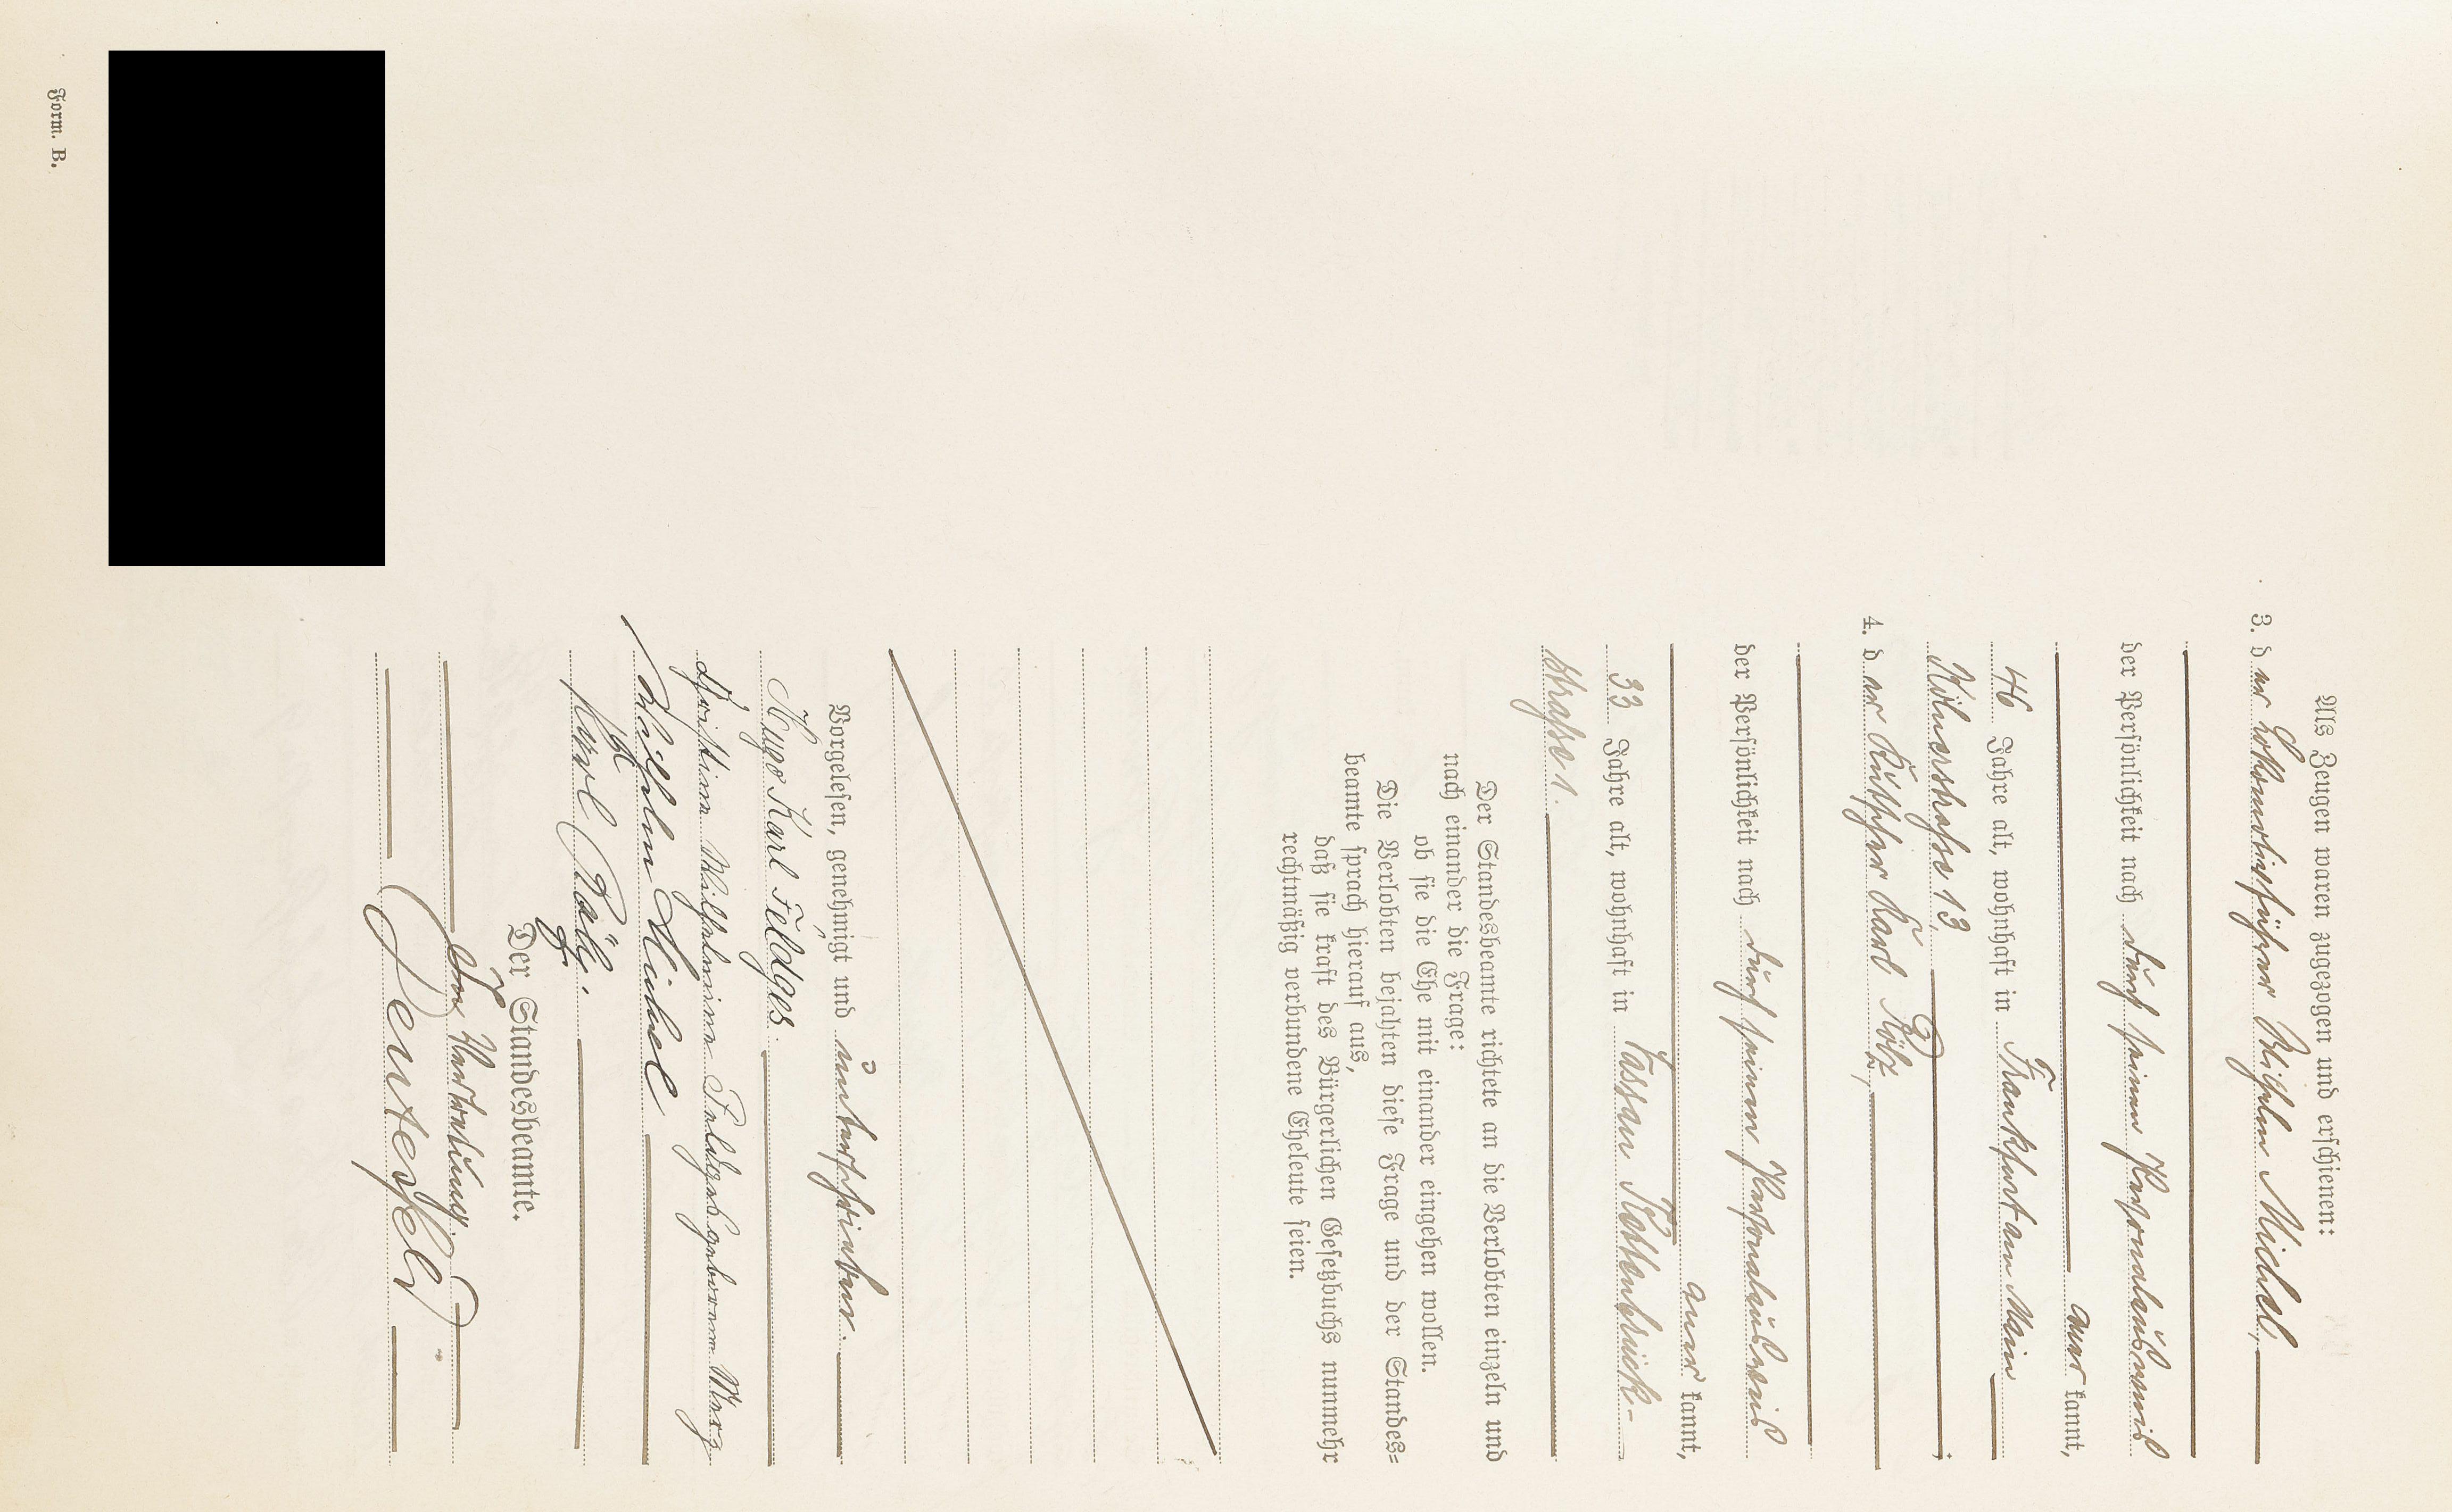 Als Zeugen waren zugezogen und erschienen:
3. der Lokomotivführer Wilhelm Michel,
der Persönlichkeit nach durch seinen Personalausweis
aner kannt,
46 Jahre alt, wohnhaft in Frankfurt am Main
Kölnerstraße 13.
4. der Kutscher Karl Kölz,
der Persönlichkeit nach durch seinen Personalausweis
aner kannt,
33 Jahre alt, wohnhaft in
straße 1.
Der Standesbeamte richtete an die Verlobten einzeln und
nach einander die Frage:
ob sie die Ehe mit einander eingehen wollen.
Die Verlobten bejahten diese Frage und der Standes-
beamte sprach hierauf aus,
daß sie kraft des Bürgerlichen Gesetzbuchs nunmehr
rechtmäßig verbundene Eheleute seien.
Vorgelesen, genehmigt und unterschrieben.
Hugo Karl Feldges.
Christine Wilhelmine Feldges geborene Merz
Wilhelm Michel
Karl Költz.
Der Standesbeamte.
In Vertretung.
Form. B.